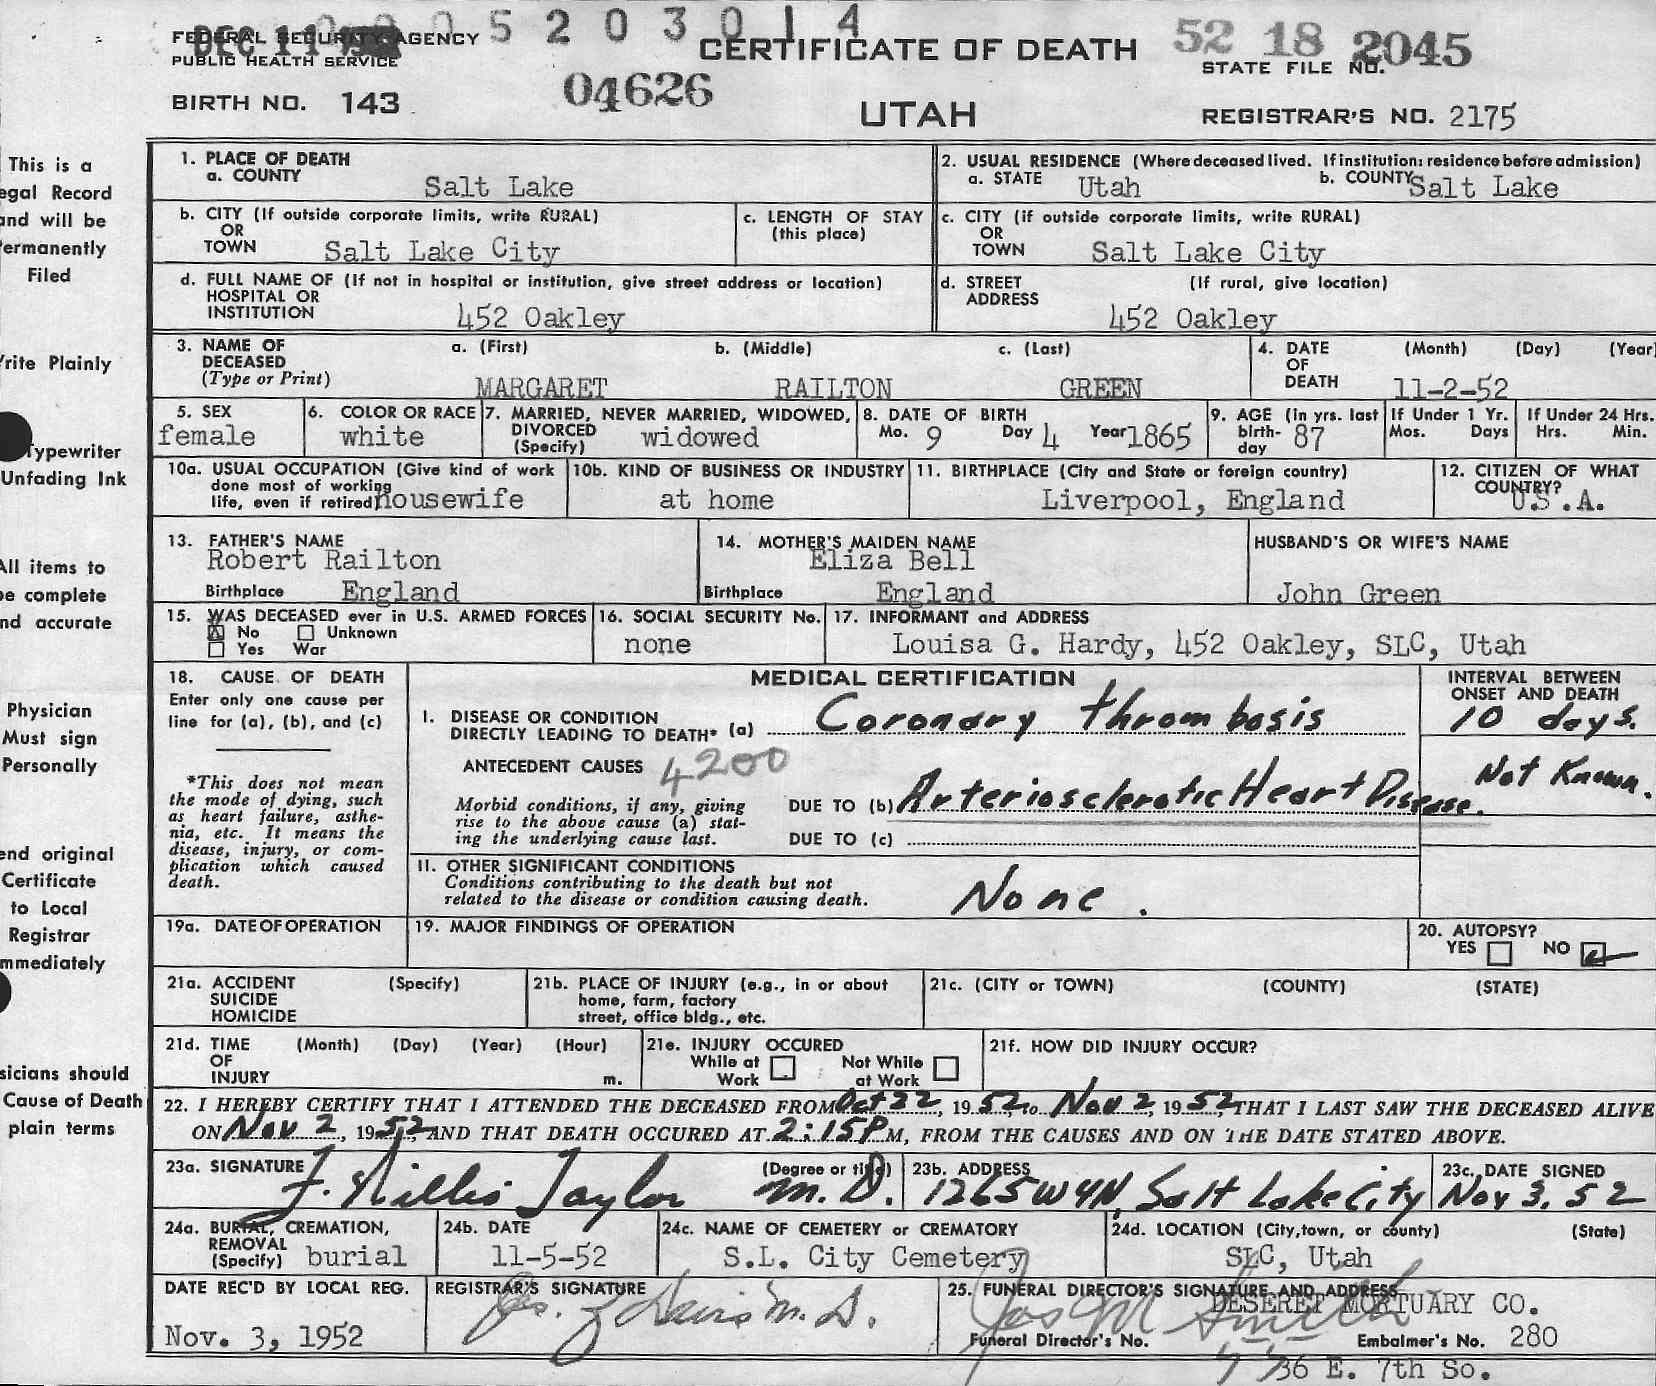 0 0 0 5 2 0 3 0 1 4
DEC 11
FEDERAL SECURITY AGENCY
PUBLIC HEALTH SERVICE
CERTIFICATE OF DEATH
52 18 2045
STATE FILE NO.
BIRTH NO. 143
04626
UTAH
REGISTRAR'S NO. 2175
This is a
egal Record
and will be
ermanently
Filed
rite Plainly
Typewriter
Unfading Ink
All items to
be complete
nd accurate
Physician
Must sign
Personally
end original
Certificate
to Local
Registrar
mmediately
sicians should
Cause of Death
plain terms
1. PLACE OF DEATH
a. COUNTY Salt Lake
2. USUAL RESIDENCE (Where deceased lived. If institution: residence before admission)
a. STATE Utah b. COUNTY Salt Lake
b. CITY (If outside corporate limits, write RURAL)
OR
TOWN Salt Lake City
c. LENGTH OF STAY
(this place)
c. CITY (if outside corporate limits, write RURAL)
OR
TOWN Salt Lake City
d. FULL NAME OF (If not in hospital or institution, give street address or location)
HOSPITAL OR
INSTITUTION 452 Oakley
d. STREET (If rural, give location)
ADDRESS
452 Oakley
3. NAME OF a. (First) b. (Middle) c. (Last)
DECEASED
(Type or Print) MARGARET RAILTON GREEN
4. DATE (Month) (Day) (Year)
OF
DEATH 11-2-52
5. SEX
female
6. COLOR OR RACE
white
7. MARRIED, NEVER MARRIED, WIDOWED,
DIVORCED
(Specify) widowed
8. DATE OF BIRTH
Mo. 9 Day 4 Year 1865
9. AGE (in yrs. last
birth-
day 87
If Under 1 Yr.
Mos. Days
If Under 24 Hrs.
Hrs. Min.
10a. USUAL OCCUPATION (Give kind of work
done most of working
life, even if retired) housewife
10b. KIND OF BUSINESS OR INDUSTRY
at home
11. BIRTHPLACE (City and State or foreign country)
Liverpool, England
12. CITIZEN OF WHAT
COUNTRY?
U.S.A.
13. FATHER'S NAME
Robert Railton
Birthplace England
14. MOTHER'S MAIDEN NAME
Eliza Bell
Birthplace England
HUSBAND'S OR WIFE'S NAME
John Green
15. WAS DECEASED ever in U.S. ARMED FORCES
X No Unknown
Yes War
16. SOCIAL SECURITY No.
none
17. INFORMANT and ADDRESS
Louisa G. Hardy, 452 Oakley, SLC, Utah
18. CAUSE OF DEATH
Enter only one cause per
line for (a), (b), and (c)
*This does not mean
the mode of dying, such
as heart failure, asthe-
nia, etc. It means the
disease, injury, or com-
plication which caused
death.
MEDICAL CERTIFICATION
INTERVAL BETWEEN
ONSET AND DEATH
I. DISEASE OR CONDITION
DIRECTLY LEADING TO DEATH* (a) Coronary thrombosis 10 days.
ANTECEDENT CAUSES 4200
Morbid conditions, if any, giving
rise to the above cause (a) stat-
ing the underlying cause last.
DUE TO (b) Arteriosclerotic Heart Disease. Not Known.
DUE TO (c)
II. OTHER SIGNIFICANT CONDITIONS
Conditions contributing to the death but not
related to the disease or condition causing death.
None.
19a. DATE OF OPERATION
19. MAJOR FINDINGS OF OPERATION
20. AUTOPSY?
YES NO
21a. ACCIDENT (Specify)
SUICIDE
HOMICIDE
21b. PLACE OF INJURY (e.g., in or about
home, farm, factory
street, office bldg., etc.
21c. (CITY or TOWN) (COUNTY) (STATE)
21d. TIME (Month) (Day) (Year) (Hour)
OF
INJURY m.
21e. INJURY OCCURED
While at Not While
Work at Work
21f. HOW DID INJURY OCCUR?
22. I HEREBY CERTIFY THAT I ATTENDED THE DECEASED FROM Oct 22, 1952 to Nov 2, 1952, THAT I LAST SAW THE DECEASED ALIVE
ON Nov 2, 1952, AND THAT DEATH OCCURED AT 2:15 P M, FROM THE CAUSES AND ON THE DATE STATED ABOVE.
23a. SIGNATURE (Degree or title)
F. Willis Taylor M.D.
23b. ADDRESS
1265 W 4 N, Salt Lake City
23c. DATE SIGNED
Nov 3, 52
24a. BURIAL, CREMATION,
REMOVAL
(Specify) burial
24b. DATE
11-5-52
24c. NAME OF CEMETERY or CREMATORY
S.L. City Cemetery
24d. LOCATION (City, town, or county) (State)
SLC, Utah
DATE REC'D BY LOCAL REG.
Nov. 3, 1952
REGISTRAR'S SIGNATURE
M.D.
25. FUNERAL DIRECTOR'S SIGNATURE AND ADDRESS
Jos M Smith
DESERET MORTUARY CO.
Funeral Director's No. Embalmer's No. 280
36 E. 7th So.